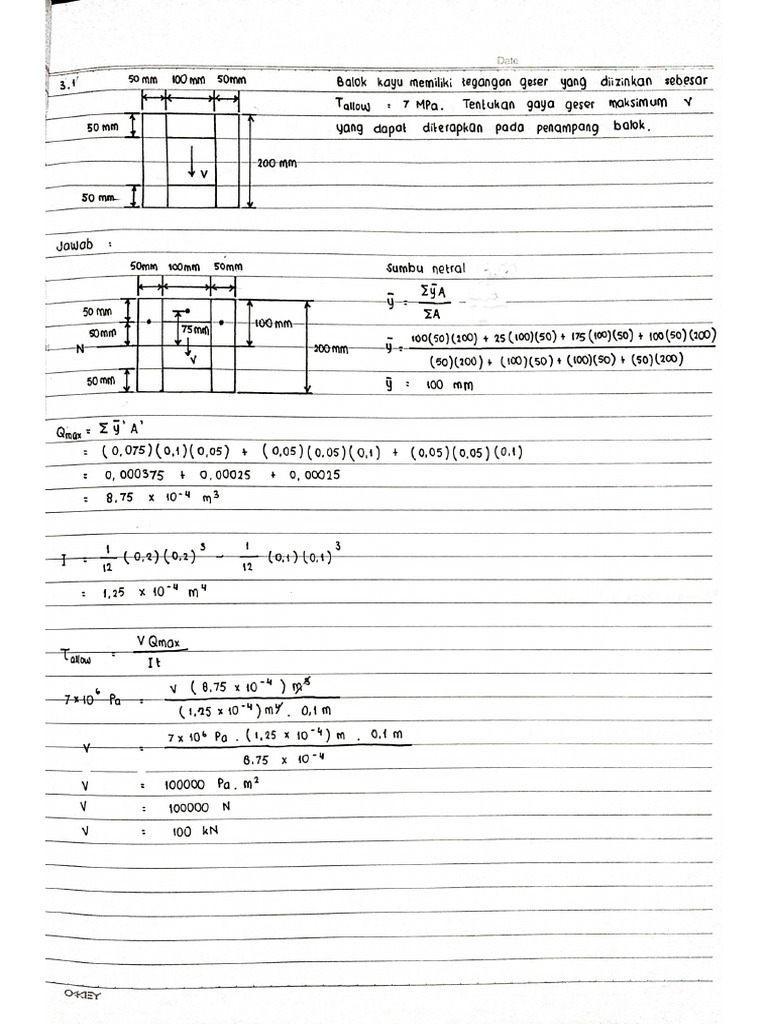 Date
3.1 50 mm 100 mm 50 mm Balok kayu memiliki tegangan geser yang diizinkan sebesar
50 mm Tallow = 7 MPa. Tentukan gaya geser maksimum V
yang dapat diterapkan pada penampang balok.
V 200 mm
50 mm
Jawab :
50mm 100 mm 50 mm Sumbu netral
50 mm ȳ = ΣȳA / ΣA
50mm 75mm 100 mm
N V 200 mm ȳ = 100(50)(200) + 25(100)(50) + 175(100)(50) + 100(50)(200) / (50)(200) + (100)(50) + (100)(50) + (50)(200)
50 mm ȳ = 100 mm
Qmax = Σ ȳ' A'
= (0,075)(0,1)(0,05) + (0,05)(0,05)(0,1) + (0,05)(0,05)(0,1)
= 0,000375 + 0,00025 + 0,00025
= 8,75 × 10⁻⁴ m³
I = 1/12 (0,2)(0,2)³ - 1/12 (0,1)(0,1)³
= 1,25 × 10⁻⁴ m⁴
Tallow = V Qmax / It
7×10⁶ Pa = V (8,75 × 10⁻⁴) m³ / (1,25 × 10⁻⁴) m⁴ . 0,1 m
V = 7×10⁶ Pa . (1,25 × 10⁻⁴) m . 0,1 m / 8.75 × 10⁻⁴
V = 100000 Pa. m²
V = 100000 N
V = 100 kN
OKEY